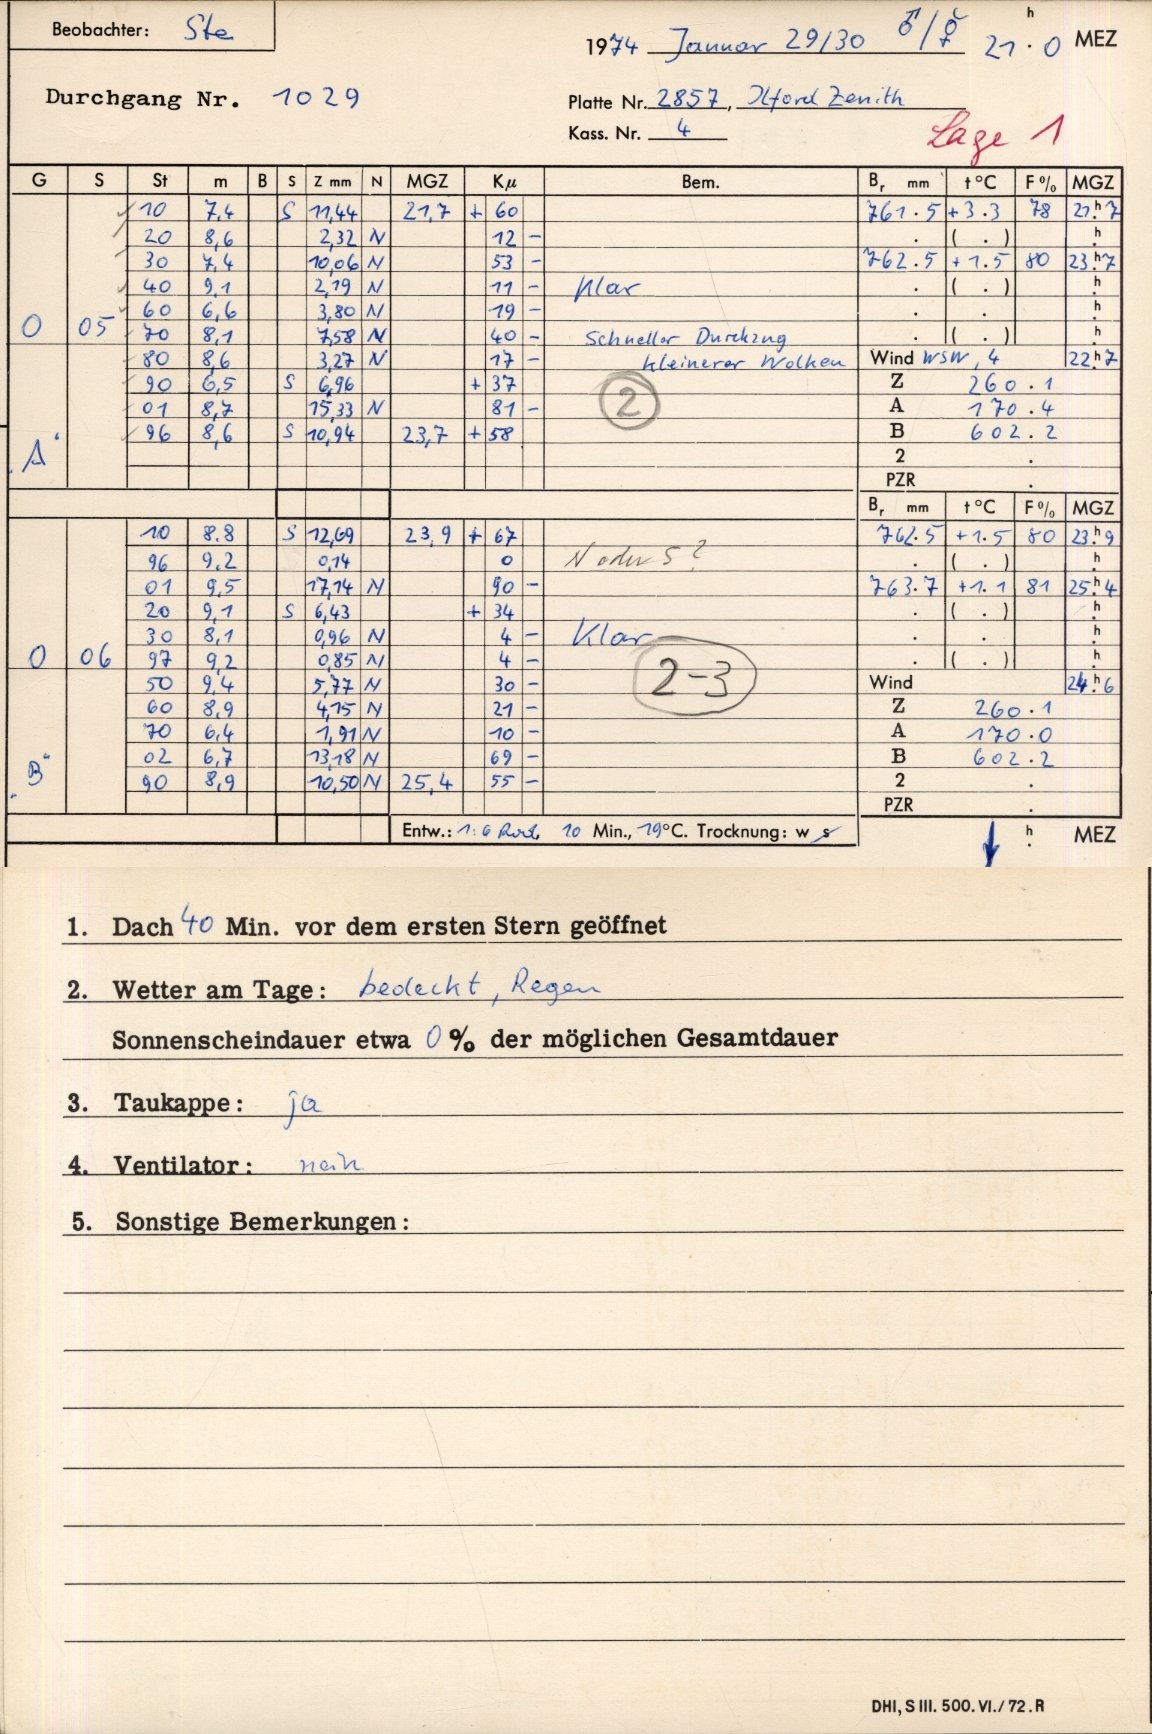 Beobachter: Ste
1974 Januar 29/30 ♂/☿ 21 h . 0 MEZ
Durchgang Nr. 1029
Platte Nr. 2857, Ilford Zenith
Kass. Nr. 4
Lage 1
G S St m B S Z mm N MGZ Kμ Bem. Br mm t °C F % MGZ
10 7,4 S 11,44 21,7 + 60 761.5 +3.3 78 21.h7
20 8,6 2,32 N 12 - . ( . ) h.
30 7,4 10,06 N 53 - 762.5 +1.5 80 23.h7
40 9,1 2,19 N 11 - Klar . ( . ) h.
60 6,6 3,80 N 19 - . . h.
0 05 70 8,1 7,58 N 40 - Schneller Durchzug . ( . ) h.
80 8,6 3,27 N 17 - kleinerer Wolken Wind WSW, 4 22.h7
90 6,5 S 6,96 + 37 Z 260.1
01 8,7 15,33 N 81 - 2 A 170.4
96 8,6 S 10,94 23,7 + 58 B 602.2
"A" 2 .
PZR .
Br mm t °C F % MGZ
10 8.8 S 12,69 23,9 + 67 762.5 +1.5 80 23.h9
96 9.2 0,14 0 N oder S? . ( . ) h.
01 9,5 17,14 N 90 - 763.7 +1.1 81 25.h4
20 9,1 S 6,43 + 34 . ( . ) h.
30 8,1 0,96 N 4 - Klar . . h.
0 06 97 9,2 0,85 N 4 - . ( . ) h.
50 9,4 5,77 N 30 - 2-3 Wind 24.h6
60 8,9 4,15 N 21 - Z 260.1
70 6,4 1,91 N 10 - A 170.0
02 6,7 13,18 N 69 - B 602.2
"B" 90 8,9 10,50 N 25,4 55 - 2 .
PZR .
Entw.: 1:6 10 Min., 19°C. Trocknung: w s h. MEZ
1. Dach 40 Min. vor dem ersten Stern geöffnet
2. Wetter am Tage: bedeckt, Regen
Sonnenscheindauer etwa 0 % der möglichen Gesamtdauer
3. Taukappe: ja
4. Ventilator: nein
5. Sonstige Bemerkungen:
DHI, S III. 500. VI./72. R